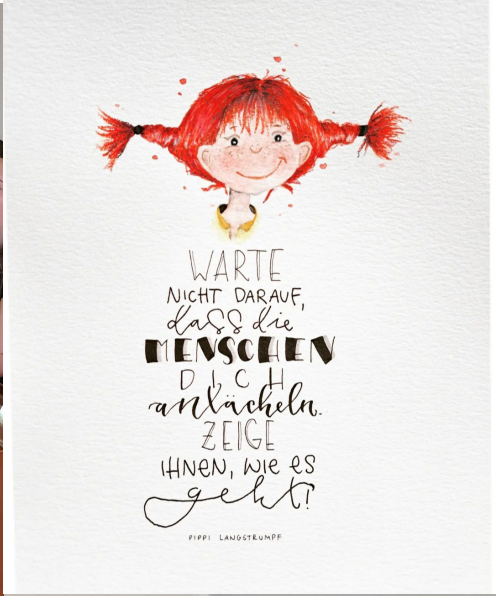 WARTE
NICHT DARAUF,
dass die
MENSCHEN
DICH
anlächeln.
ZEIGE
IHNEN, WIE ES
geht!
PIPPI LANGSTRUMPF